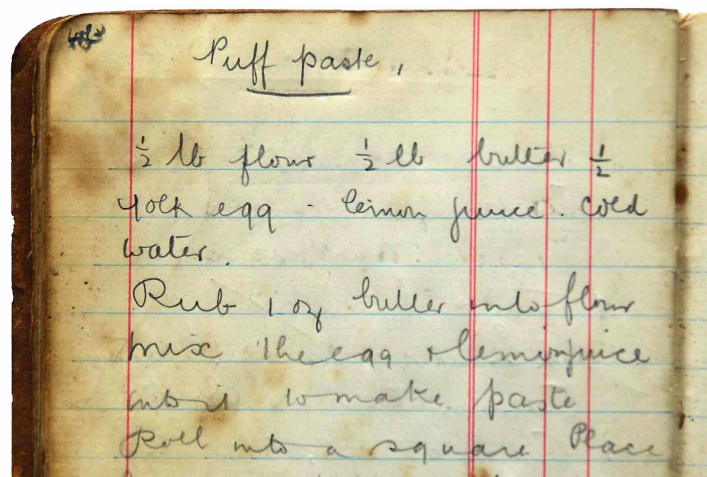 Puff paste,
½ lb flour ½ lb butter ½
yolk egg - lemon juice. cold
water.
Rub 1 oz butter into flour
mix the egg & lemon juice
into it to make paste
Roll into a square Place